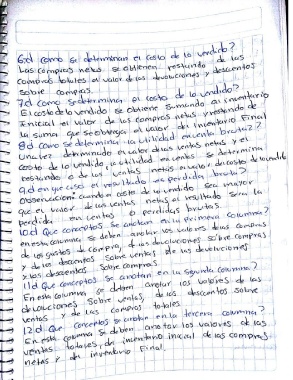 6.d como se determinan el costo de lo vendido?
Las compras netas se obtienen restando de las
compras totales el valor de las devoluciones y descuentos
sobre compras.
7.d como se determina el costo de lo vendido?
El costo de lo vendido se obtiene sumando al inventario
Inicial el valor de las compras netas y restando de
la suma que se obtenga el valor de inventario Final
8.d como se determina la utilidad en venta bruta?
Una vez determinado el valor de las ventas netas y el
costo de lo vendido, la utilidad en ventas se determina
restando a de las ventas netas el valor de costo de lo vendido
9.d en que caso el resultado es perdida bruta?
cuando el costo de lo vendido sea mayor
que el valor de las ventas netas el resultado sera la
perdida en ventas o perdidas brutas.
10.d Que conceptos se anotan en la primera columna?
en esta columna se deben anotar los valores de las compras
de los gastos de compra, de las devoluciones sobre compras
y de los descuentos sobre ventas de las devoluciones
y los descuentos sobre compras
11.d Que conceptos se anotan en la segunda columna?
En esta columna se deben anotar los valores de las
devoluciones sobre ventas, de los descuentos sobre
ventas y de las compras totales.
12.d Que conceptos se anotan en la tercera columna?
En esta columna se deben anotar los valores de las
ventas totales, de inventario inicial de las compras
netas y de inventario Final.